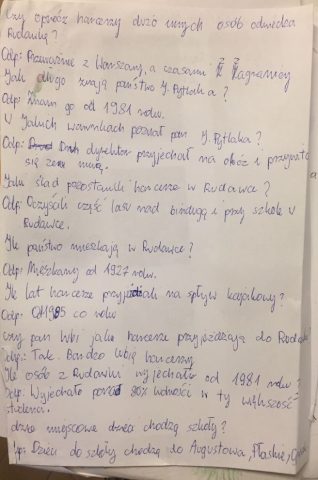 Czy oprócz harcerzy dużo innych osób odwiedza
Rudawkę?
Odp: Przeważnie z Warszawy, a czasami z Zagranicy
Jak długo znają państwo J. Pytlaka?
Odp: Znam go od 1981 roku.
W jakich warunkach poznał pan J. Pytlaka?
Odp: Druh dyrektor przyjechał na obóz i
się ze mną.
Jaki ślad pozostawili harcerze w Rudawce?
Odp: Oczyścili część lasu nad bindugą i przy szkole w
Rudawce.
Ile państwo mieszkają w Rudawce?
Odp: Mieszkamy od 1927 roku.
Ile lat harcerze na spływ kajakowy?
Odp: 1985 co roku
czy pan lubi jak harcerze przyjeżdżają do
Odp.: Tak. Bardzo lubię harcerzy
Ile osób z Rudawki wyjechało od 1981 roku?
Odp: Wyjechało ponad 90% ludności w ty większość
studenci.
miejscowe dzieci chodzą szkoły?
Odp: Dzieci do szkoły chodzą do Augustowa, Płaskiej,